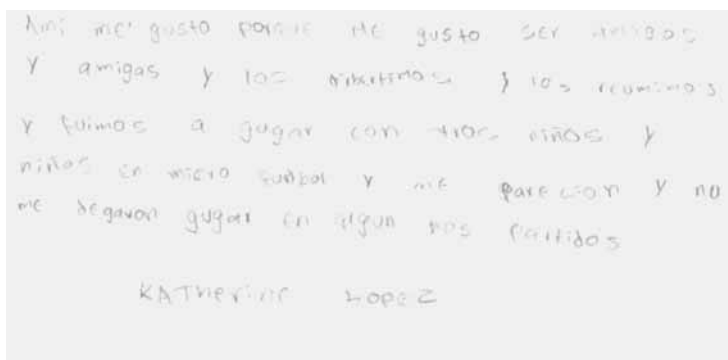 Ami me gusto porque me gusto ser amigos
y amigas y los divertimos y los reunimos
y fuimos a gugar con tros niños y
niños en micro fudbol y me parecion y no
me degaron gugar en algun nos partidos
KATherine Lopez